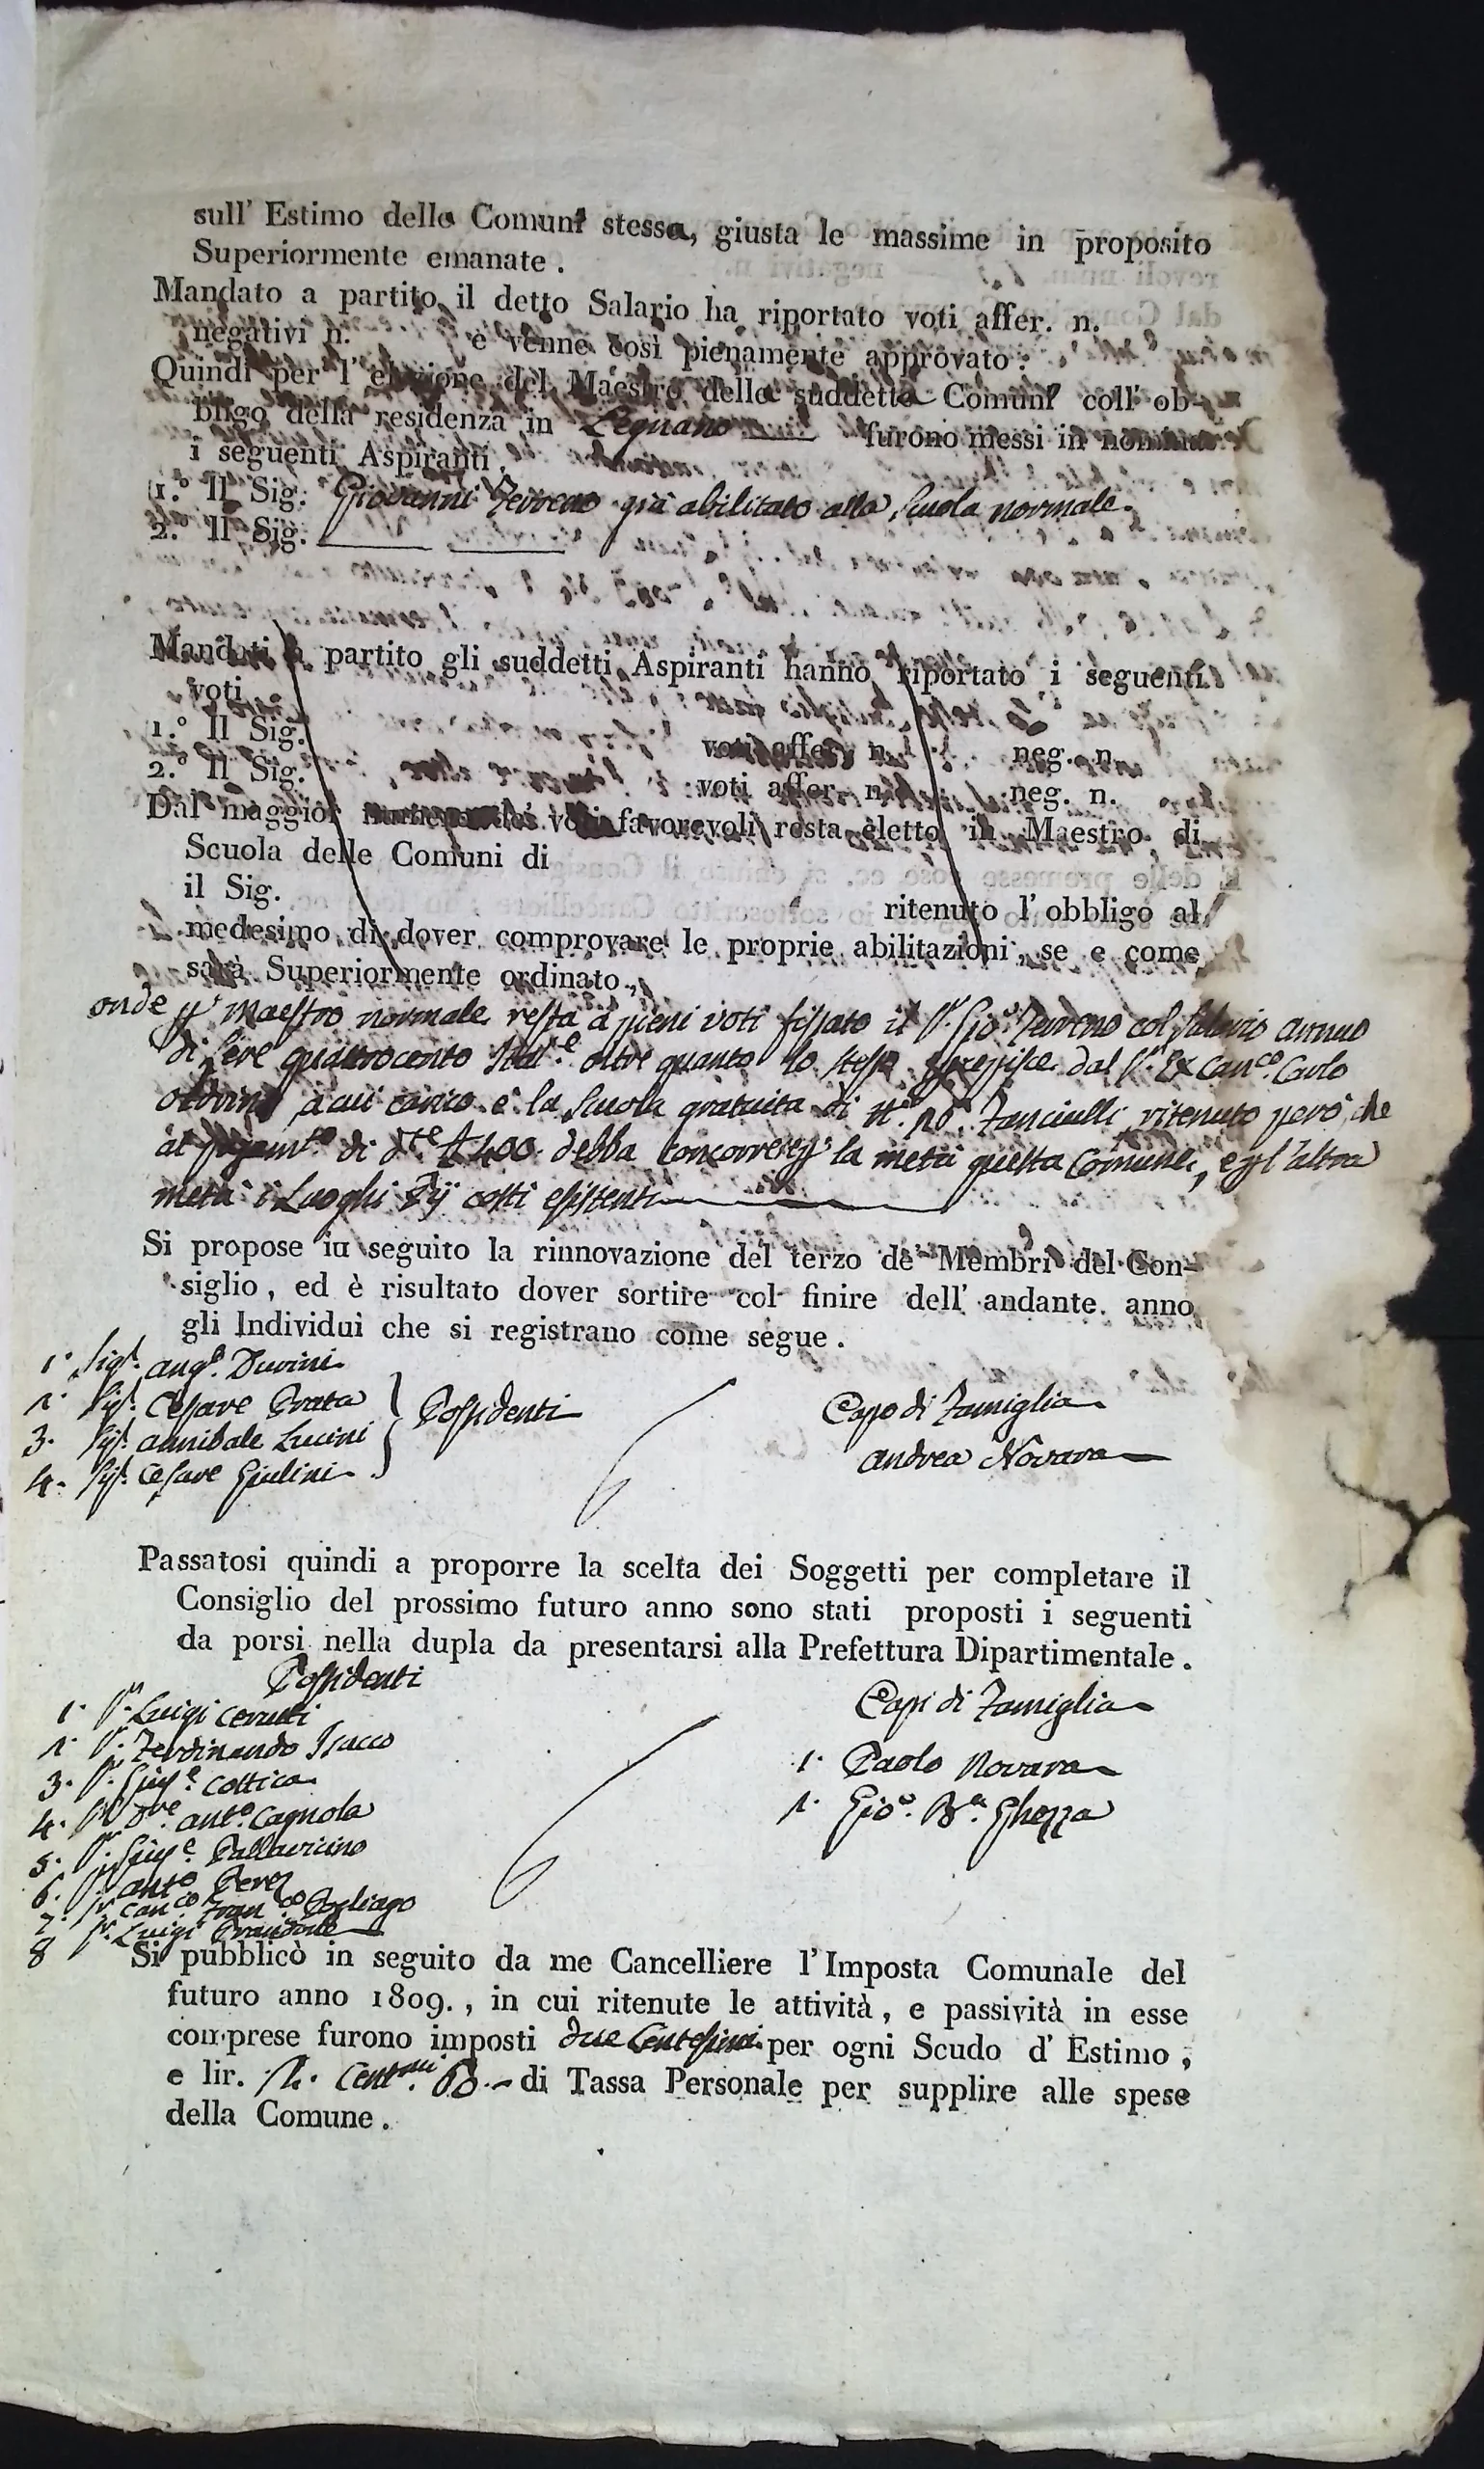 sull' Estimo della Comune stessa, giusta le massime in proposito
Superiormente emanate.
Mandato a partito il detto Salario ha riportato voti affer. n.
negativi n. e venne così pienamente approvato.
Quindi per l'elezione del Maestro della suddetta Comune coll' ob-
bligo della residenza in Legnano furono messi in nomina
i seguenti Aspiranti.
1.° Il Sig. Giovanni Terreno già abilitato alla Scuola normale.
2.° Il Sig.
Mandati a partito gli suddetti Aspiranti hanno riportato i seguenti
voti
1.° Il Sig. voti affer. n. neg. n.
2.° Il Sig. voti affer. n. neg. n.
Dal maggior numero de' voti favorevoli resta eletto in Maestro di
Scuola delle Comuni di
il Sig. ritenuto l'obbligo al
medesimo di dover comprovare le proprie abilitazioni, se e come
sarà Superiormente ordinato.
onde pr Maestro normale resta a pieni voti fissato il Sr. Gio. Terreno col Salario annuo
di Lire quattrocento oltre quanto lo stesso percepisce dal Sr. Ex Canco. Carlo
a cui carico è la Scuola gratuita di No. 20. Fanciulli, ritenuto però che
al di dte. L 400. debba concorrere pr la metà questa Comune, e pr l'altra
metà i Luoghi Pij costì esistenti
Si propose in seguito la rinnovazione del terzo de' Membri del Con-
siglio, ed è risultato dover sortire col finire dell' andante anno
gli Individui che si registrano come segue.
1° Sigr. Ango. Durini
2. Sigr. Cesare Prata
3. Sigr. Annibale Lucini
4. Sigr. Cesare Giulini
Possidenti
Capo di Famiglia
Andrea Novara
Passatosi quindi a proporre la scelta dei Soggetti per completare il
Consiglio del prossimo futuro anno sono stati proposti i seguenti
da porsi nella dupla da presentarsi alla Prefettura Dipartimentale.
Possidenti
1. Sr. Luigi Ceruti
2. Sr. Ferdinando Isacco
3. Sr. Giuse. Cottica
4. Sr. Dre. Anto. Cagnola
5. Sr. Giuse. Pallavicino
6. Sr. Anto. Perez
7. Sr. Canco. Franco.
8 Sr. Luigi
Capi di Famiglia
1. Paolo Novara
2. Gio. Ba. Ghezza
Si pubblicò in seguito da me Cancelliere l'Imposta Comunale del
futuro anno 1809., in cui ritenute le attività, e passività in esse
comprese furono imposti due Centesimi per ogni Scudo d'Estimo,
e lir. 2. Centmi. 60.- di Tassa Personale per supplire alle spese
della Comune.